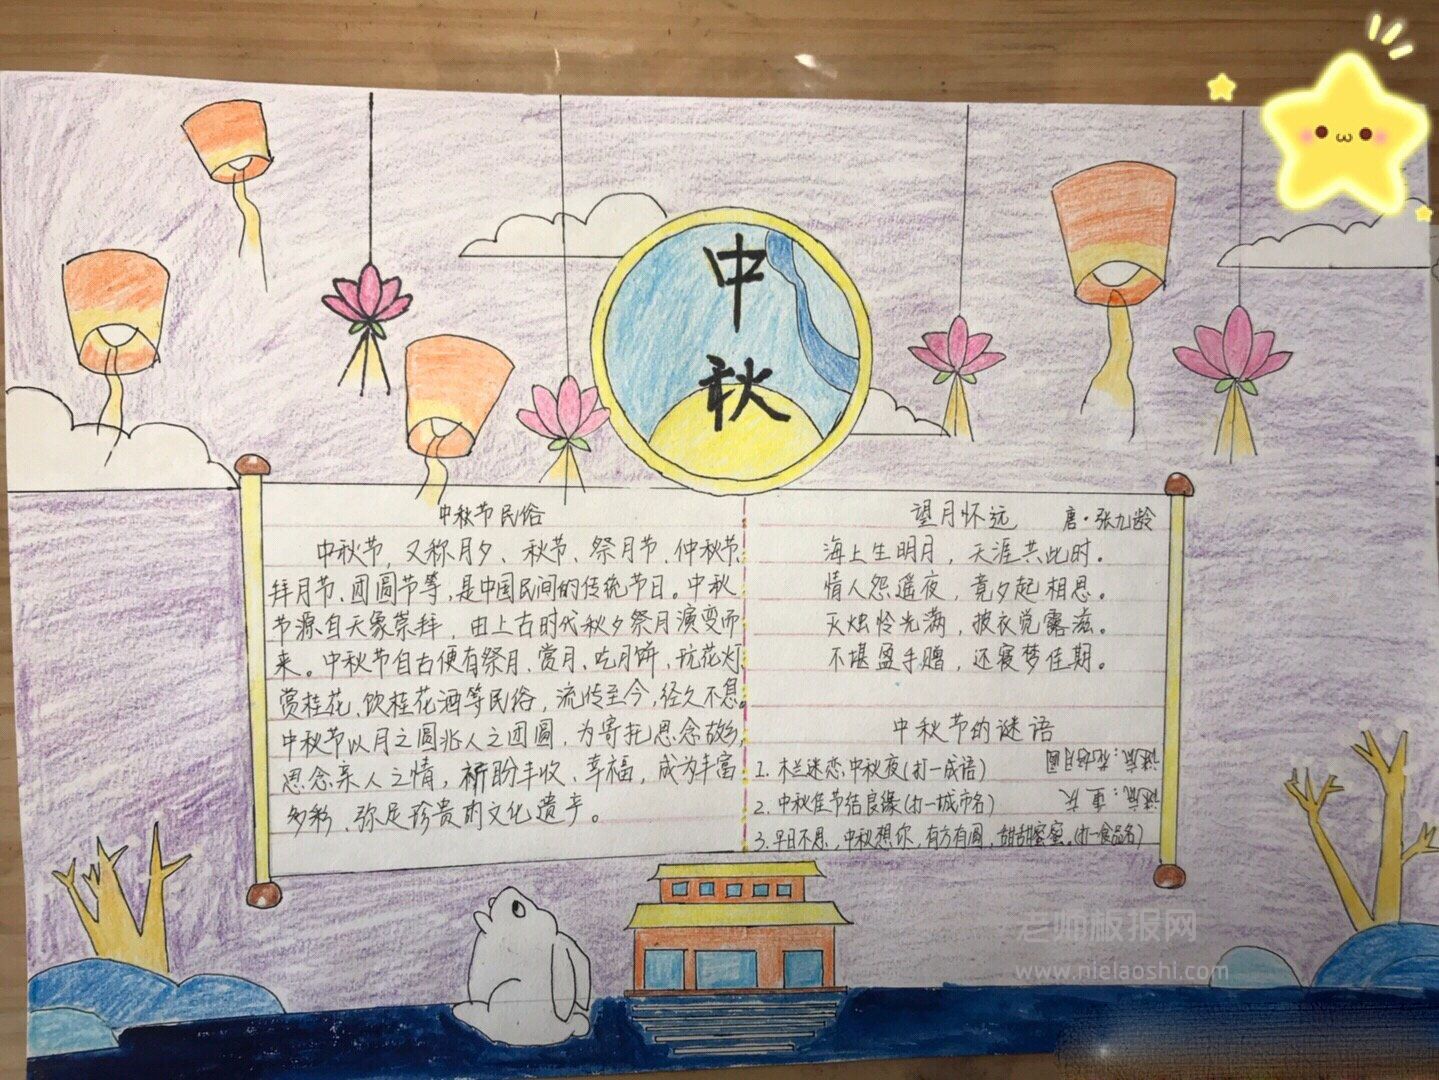 中
秋
中秋节民俗
中秋节，又称月夕、秋节、祭月节、仲秋节、
拜月节、团圆节等，是中国民间的传统节日。中秋
节源自天象崇拜，由上古时代秋夕祭月演变而
来。中秋节自古便有祭月、赏月、吃月饼、玩花灯、
赏桂花、饮桂花酒等民俗，流传至今，经久不息。
中秋节以月之圆兆人之团圆，为寄托思念故乡，
思念亲人之情，祈盼丰收、幸福，成为丰富
多彩、弥足珍贵的文化遗产。
望月怀远 唐·张九龄
海上生明月，天涯共此时。
情人怨遥夜，竟夕起相思。
灭烛怜光满，披衣觉露滋。
不堪盈手赠，还寝梦佳期。
中秋节的谜语
1. 木兰迷恋中秋夜（打一成语） 谜底：花好月圆
2. 中秋佳节结良缘（打一城市名） 谜底：重庆
3. 早日不思，中秋想你，有方有圆，甜甜蜜蜜。（打一食品名）
老师板报网
www.nielaoshi.com